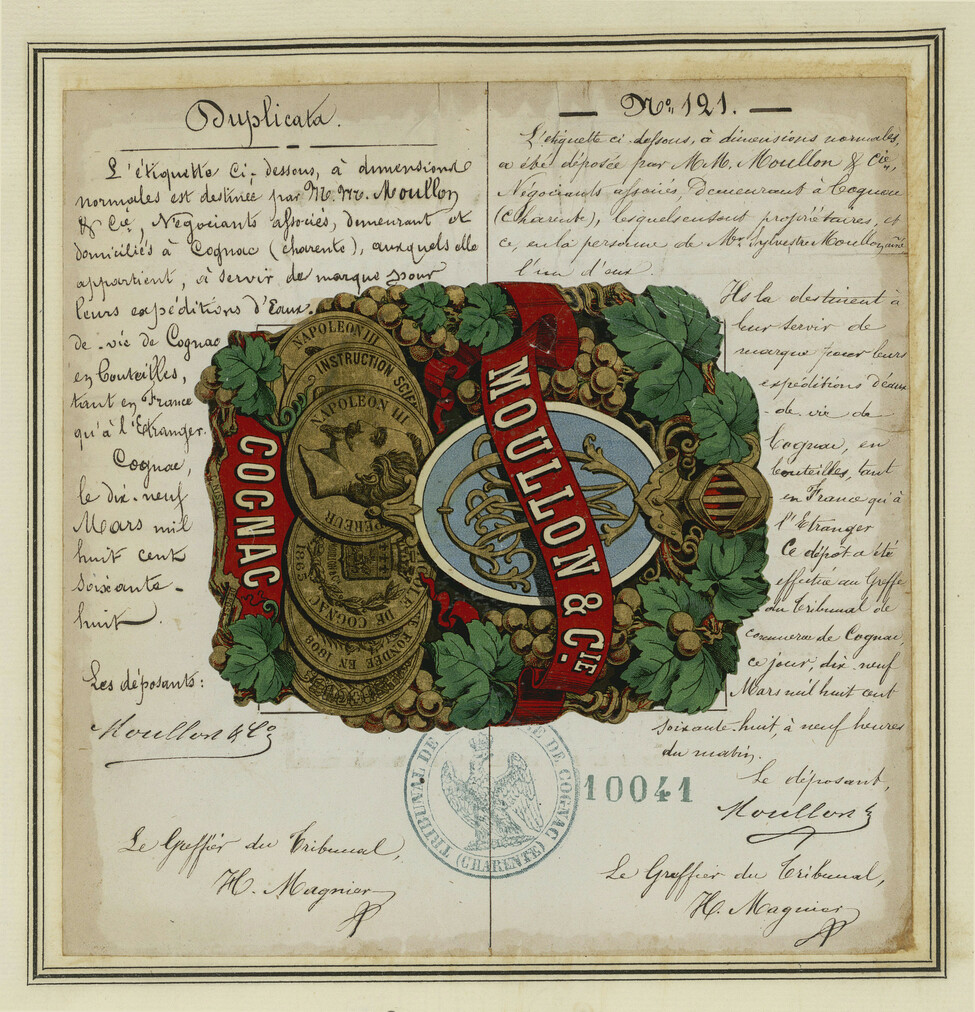 Duplicata.
L'étiquette ci-dessous, à dimensions
normales est destinée par M.Mrs. Moullon
& Cie, Négociants associés, demeurant et
domiciliés à Cognac (charente), auxquels elle
appartient, à servir de marque pour
leurs expéditions d'Eaux-
de-vie de Cognac
en bouteilles,
tant en France
qu'à l'Etranger.
Cognac,
le dix-neuf
Mars mil
huit cent
soixante-
huit.
Les déposants:
Moullon & Co
Le Greffier du Tribunal,
H. Magnier
No. 121.
L'étiquette ci-dessous, à dimensions normales,
a été déposée par M.M. Moullon & Cie,
Négociants associés Demeurant à Cognac
(Charente), lesquels en sont propriétaires, et
ce, en la personne de Mr. Sylvestre Moullon, aîné
l'un d'eux.
Ils la destinent à
leur servir de
marque pour leurs
expéditions d'eaux
-de-vie de
Cognac, en
bouteilles, tant
en France qu'à
l'Etranger
Ce dépôt a été
effectué au Greffe
du Tribunal de
commerce de Cognac
ce jour, dix-neuf
Mars mil huit cent
soixante-huit, à neuf heures
du matin.
Le déposant,
Moullon &
Le Greffier du Tribunal,
H. Magnier
COGNAC
NAPOLEON III
INSTRUCTION SCIE
NAPOLEON III
EMPEREUR
1865
VILLE DE COGNAC
FONDÉE EN 1808
MOULLON & CIE
TRIBUNAL DE COMMERCE DE COGNAC
(CHARENTE)
10041